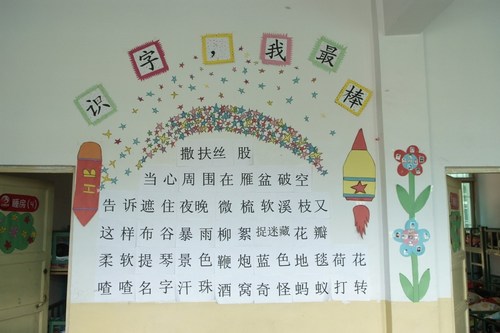 识字，我最棒
撒扶丝 股
当心周围在雁盆破空
告诉遮住夜晚 微梳软溪枝又
这样布谷暴雨柳絮捉迷藏花瓣
柔软提琴景色鞭炮蓝色地毯荷花
喳喳名字汗珠酒窝奇怪蚂蚁打转